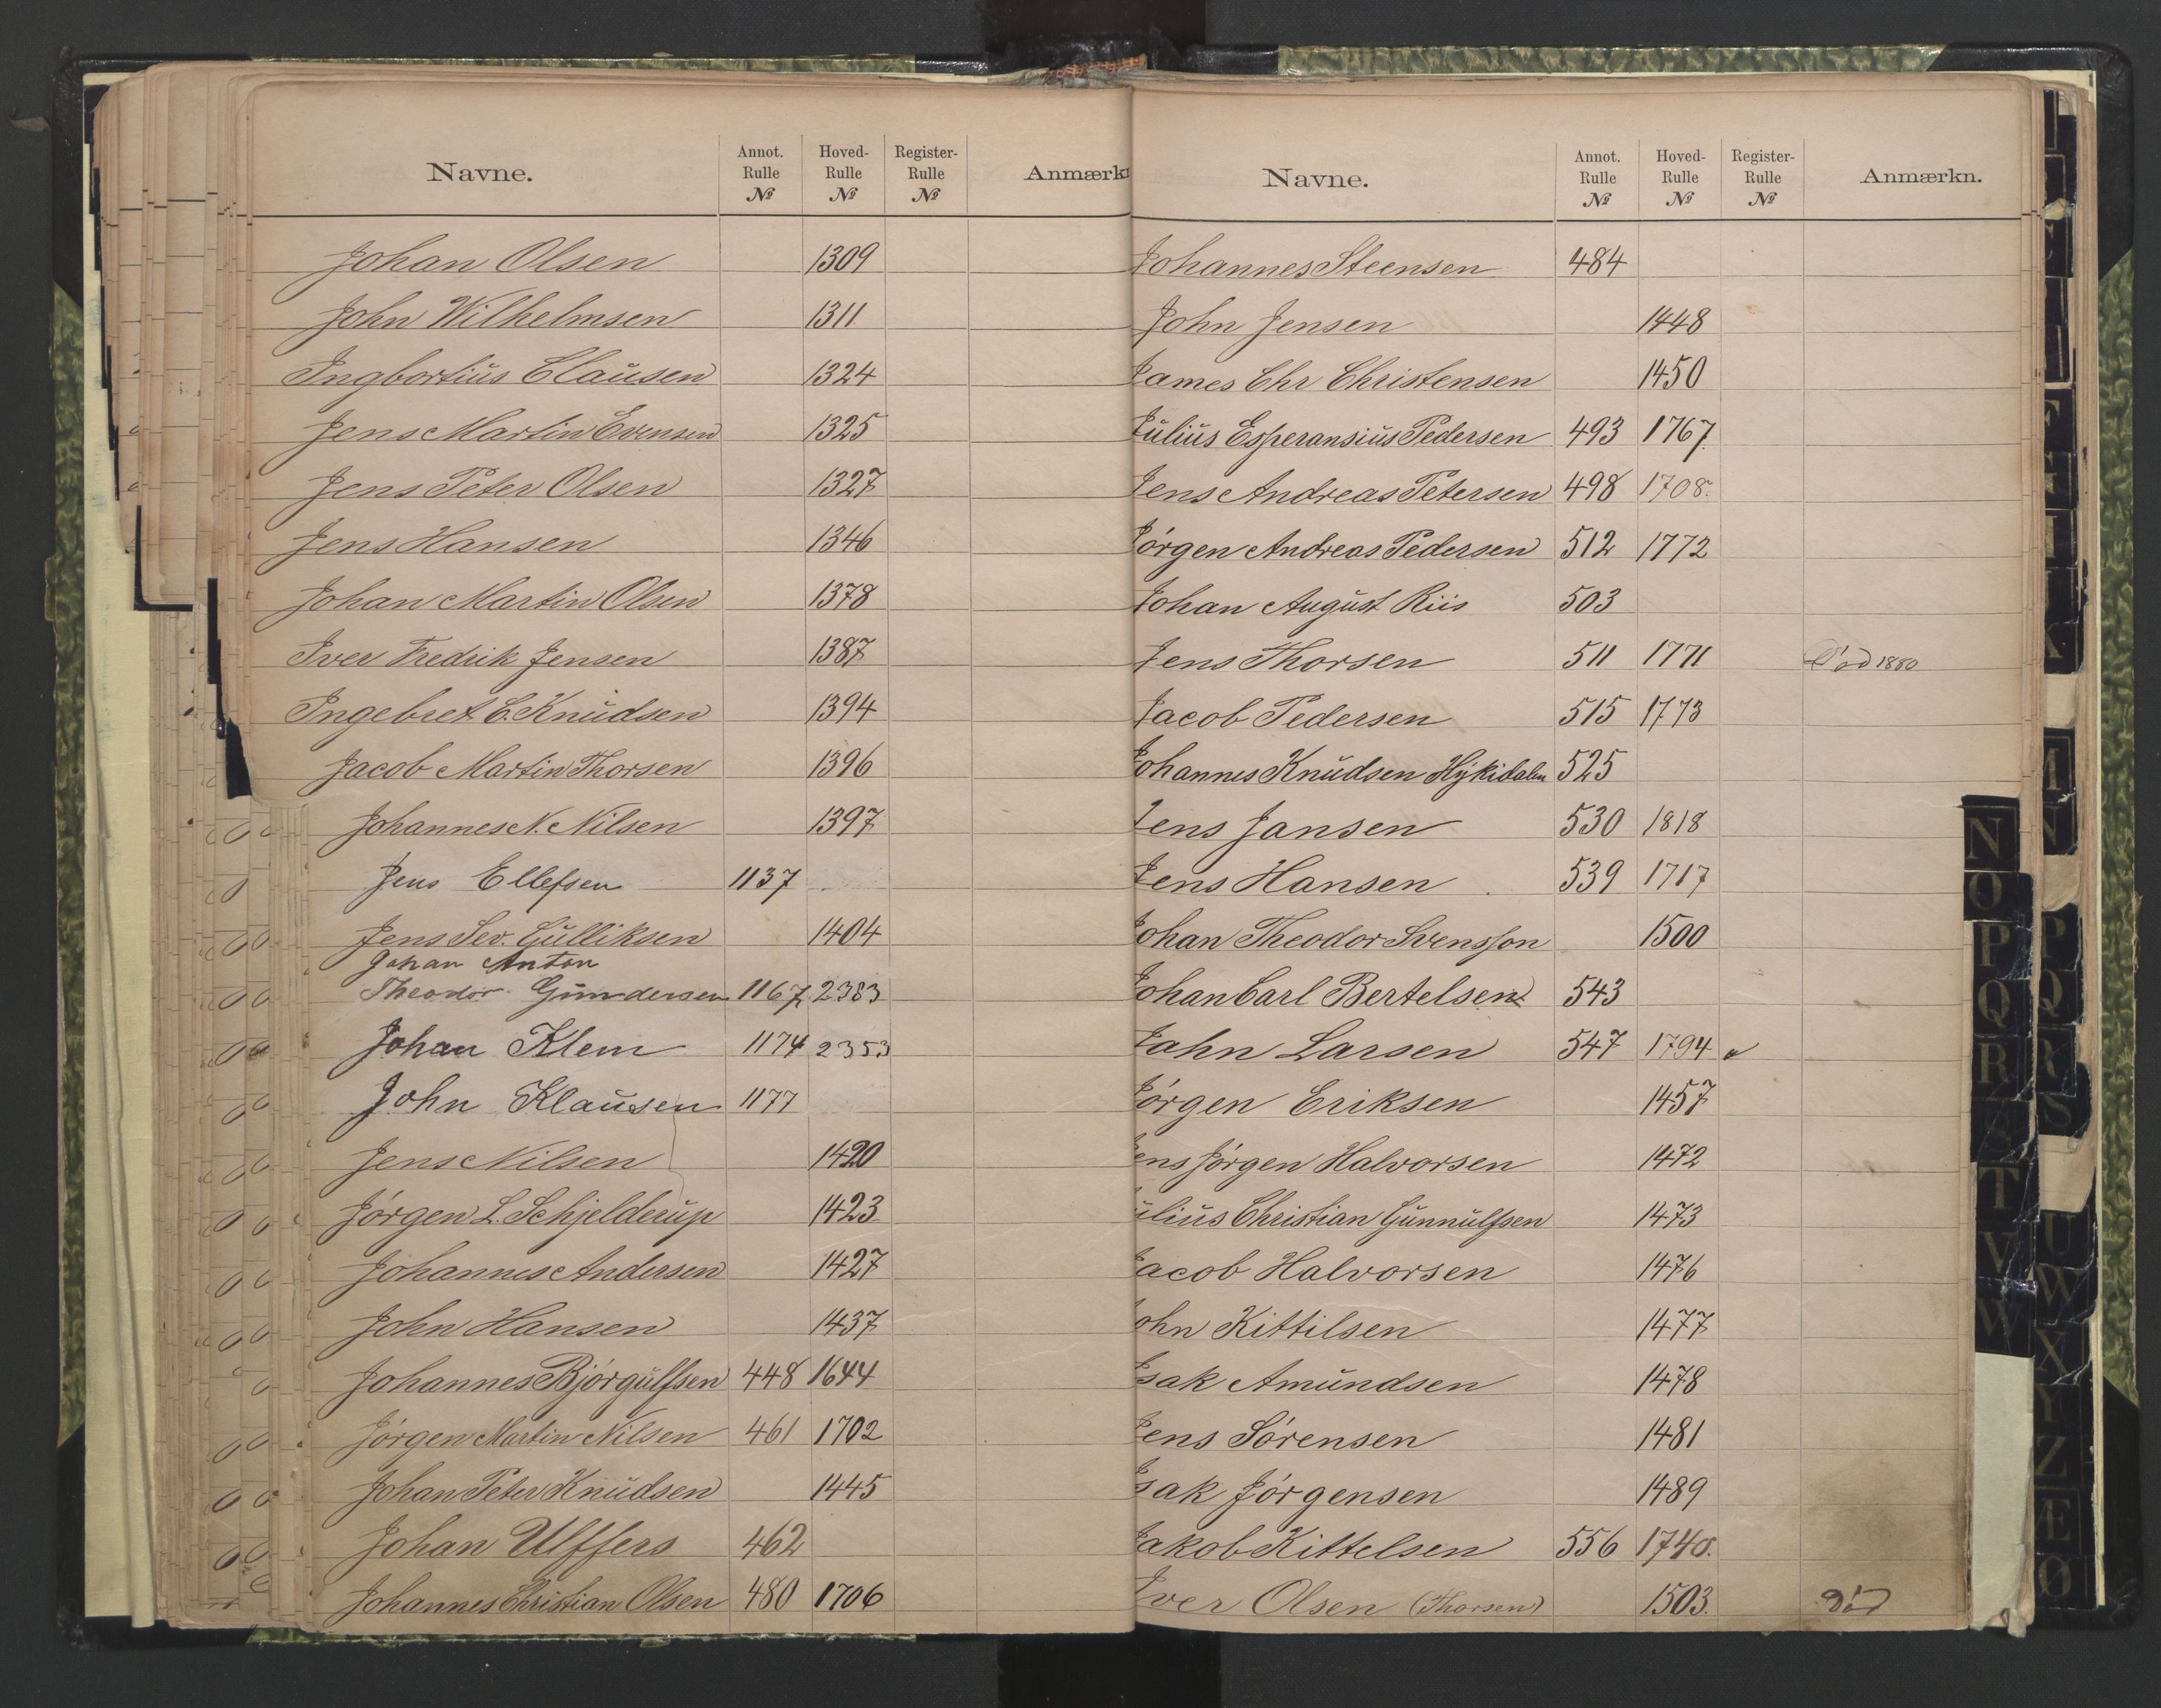 Navne. Annot. Rulle № Hoved-Rulle № Register-Rulle № Anmærkn
Johan Olsen 1309
John Wilhelmsen 1311
Ingbortius Clausen 1324
Jens Martin Evensen 1325
Jens Peter Olsen 1327
Jens Hansen 1346
Johan Martin Olsen 1378
Iver Fredrik Jensen 1387
Ingebret C. Knudsen 1394
Jacob Martin Thorsen 1396
Johannes N. Nilsen 1397
Jens Ellefsen 1137
Jens Sev. Gulliksen 1404
Johan Anton
Theodor Gundersen 1167 2383
Johan Klem 1174 2353
John Klausen 1177
Jens Nilsen 1420
Jörgen L. Schjelderup 1423
Johannes Andersen 1427
John Hansen 1437
Johannes Bjørgulfsen 448 1644
Jørgen Martin Nilsen 461 1702
Johan Peter Knudsen 1445
Johan Ulffers 462
Johannes Christian Olsen 480 1706
Navne. Annot. Rulle № Hoved-Rulle № Register-Rulle № Anmærkn.
Johannes Steensen 484
John Jensen 1448
James Chr Christensen 1450
Julius Esperansius Pedersen 493 1767
Jens Andreas Petersen 498 1708.
Jørgen Andreas Pedersen 512 1772
Johan August Riis 503
Jens Thorsen 511 1771 Død 1880
Jacob Pedersen 515 1773
Johannes Knudsen 525
Jens Jansen 530 1818
Jens Hansen 539 1717
Johan Theodor Svensson 1500
Johan Carl Bertelsen 543
Jahn Larsen 547 1794
Jørgen Eriksen 1457
Jens Jørgen Halvorsen 1472
ulius Christian Gunnulfsen 1473
Jacob Halvorsen 1476
John Kittilsen 1477
Isak Amundsen 1478
Jens Sörensen 1481
Isak Jørgensen 1489
Jakob Kittelsen 556 1740.
Iver Olsen (Thorsen) 1503. Død
N
O
P
Q
R
S
T
V
W
P
Q
R
S
U
W
X
Y
Z
Æ
Ø